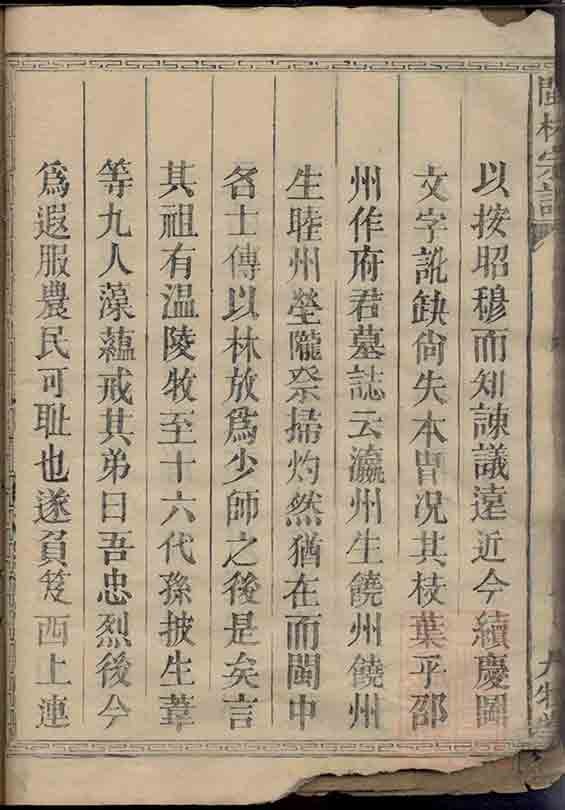 閩林宗譜
以按昭穆而知諫議遠近今續慶圖
文字訛缺尙失本曾况其枝葉乎邵
州作府君墓誌云瀛州生饒州饒州
生睦州塋隴祭掃灼然猶在而閩中
各士傳以林放爲少師之後是矣言
其祖有温陵牧至十六代孫披生葦
等九人藻蘊戒其弟曰吾忠烈後今
爲遐服農民可耻也遂負笈西上連